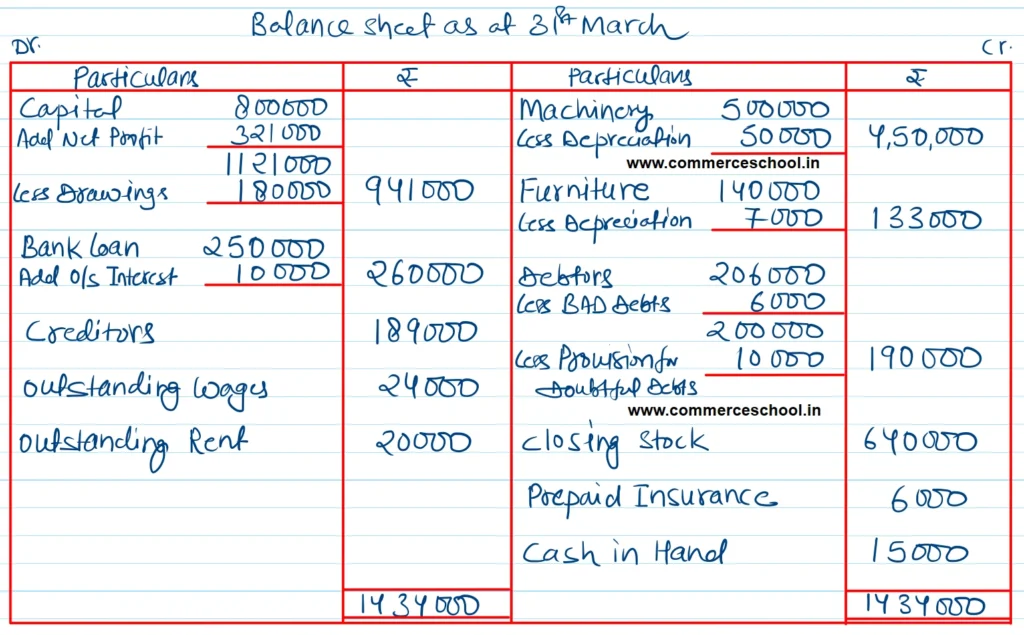 Balance sheet as at 31st March
Dr. Cr.
Particulars ₹ Particulars ₹
Capital 800000 Machinery 500000
Add Net Profit 321000 Less Depreciation 50000 4,50,000
1121000 www.commerceschool.in
Less Drawings 180000 941000 Furniture 140000
Less Depreciation 7000 133000
Bank loan 250000
Add O/s Interest 10000 260000 Debtors 206000
Less BAD Debts 6000
Creditors 189000 200000
Less Provision for 10000 190000
Outstanding Wages 24000 Doubtful Debts
www.commerceschool.in
Outstanding Rent 20000 Closing Stock 640000
Prepaid Insurance 6000
Cash in Hand 15000
1434000 1434000